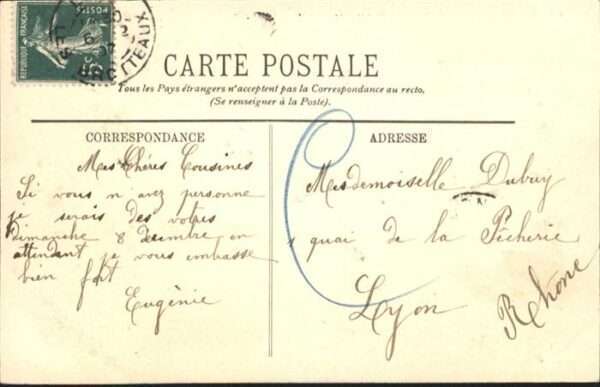 POSTES
REPUBLIQUE FRANÇAISE
CARTE POSTALE
Tous les Pays étrangers n'acceptent pas la Correspondance au recto.
(Se renseigner à la Poste).
CORRESPONDANCE
Mes Chères Cousines
Si vous n'avez personne
je serais des votres
dimanche 8 decembre en
attendant je vous embrasse
bien fort
Eugènie
ADRESSE
Mesdemoiselle Dubuy
quai de la Pêcherie
Lyon
Rhône